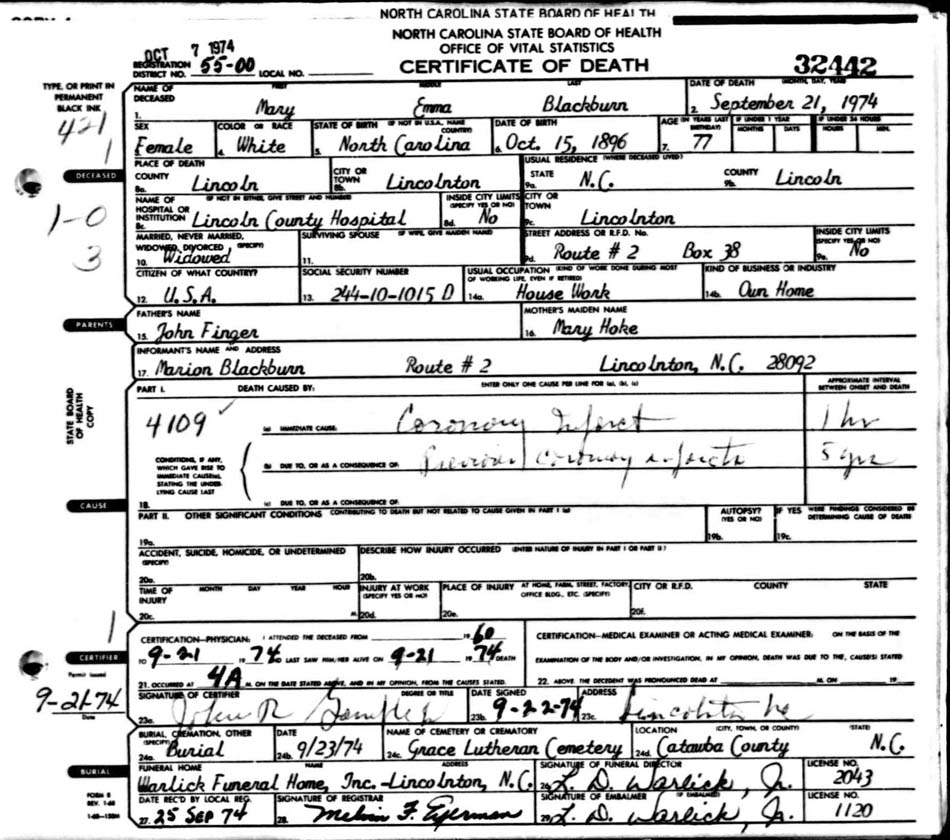 NORTH CAROLINA STATE BOARD OF HEALTH
NORTH CAROLINA STATE BOARD OF HEALTH
OFFICE OF VITAL STATISTICS
CERTIFICATE OF DEATH
OCT 7 1974
REGISTRATION DISTRICT NO. 55-00 LOCAL NO.
32442
TYPE, OR PRINT IN PERMANENT BLACK INK
421
1
DECEASED
1-0
3
NAME OF DECEASED FIRST MIDDLE LAST
1. Mary Emma Blackburn
DATE OF DEATH (MONTH, DAY, YEAR)
2. September 21, 1974
SEX
Female
COLOR OR RACE
4. White
STATE OF BIRTH (IF NOT IN U.S.A., NAME COUNTRY)
5. North Carolina
DATE OF BIRTH
6. Oct. 15, 1896
AGE (IN YEARS LAST BIRTHDAY)
7. 77
IF UNDER 1 YEAR
MONTHS DAYS
IF UNDER 24 HOURS
HOURS MIN.
PLACE OF DEATH
COUNTY
8a. Lincoln
CITY OR TOWN
8b. Lincolnton
USUAL RESIDENCE (WHERE DECEASED LIVED)
STATE
9a. N.C.
COUNTY
9b. Lincoln
NAME OF HOSPITAL OR INSTITUTION (IF NOT IN EITHER, GIVE STREET AND NUMBER)
8c. Lincoln County Hospital
INSIDE CITY LIMITS (SPECIFY YES OR NO)
8d. No
CITY OR TOWN
9c. Lincolnton
MARRIED, NEVER MARRIED, WIDOWED, DIVORCED (SPECIFY)
10. Widowed
SURVIVING SPOUSE (IF WIFE, GIVE MAIDEN NAME)
11.
STREET ADDRESS OR R.F.D. No.
9d. Route # 2 Box 38
INSIDE CITY LIMITS (SPECIFY YES OR NO)
9e. No
CITIZEN OF WHAT COUNTRY?
12. U.S.A.
SOCIAL SECURITY NUMBER
13. 244-10-1015 D
USUAL OCCUPATION (KIND OF WORK DONE DURING MOST OF WORKING LIFE, EVEN IF RETIRED)
14a. House Work
KIND OF BUSINESS OR INDUSTRY
14b. Own Home
PARENTS
FATHER'S NAME
15. John Finger
MOTHER'S MAIDEN NAME
16. Mary Hoke
INFORMANT'S NAME AND ADDRESS
17. Marion Blackburn Route # 2 Lincolnton, N.C. 28092
STATE BOARD OF HEALTH COPY
PART I. DEATH CAUSED BY: ENTER ONLY ONE CAUSE PER LINE FOR (a), (b), (c)
APPROXIMATE INTERVAL BETWEEN ONSET AND DEATH
4109
(a) IMMEDIATE CAUSE. Coronary Infarct 1 hr
CONDITIONS, IF ANY, WHICH GAVE RISE TO IMMEDIATE CAUSE(a) STATING THE UNDERLYING CAUSE LAST
(b) DUE TO, OR AS A CONSEQUENCE OF. Previous coronary infarcts 5 yrs
(c) DUE TO, OR AS A CONSEQUENCE OF.
18.
CAUSE
PART II. OTHER SIGNIFICANT CONDITIONS CONTRIBUTING TO DEATH BUT NOT RELATED TO CAUSE GIVEN IN PART I (a)
19a.
AUTOPSY? (YES OR NO)
19b.
IF YES WERE FINDINGS CONSIDERED IN DETERMINING CAUSE OF DEATH
19c.
ACCIDENT, SUICIDE, HOMICIDE, OR UNDETERMINED (SPECIFY)
20a.
DESCRIBE HOW INJURY OCCURRED (ENTER NATURE OF INJURY IN PART I OR PART II)
20b.
TIME OF INJURY MONTH DAY YEAR HOUR
20c. M.
INJURY AT WORK (SPECIFY YES OR NO)
20d.
PLACE OF INJURY AT HOME, FARM, STREET, FACTORY, OFFICE BLDG., ETC. (SPECIFY)
20e.
CITY OR R.F.D. COUNTY STATE
20f.
1
CERTIFIER
Permit issued
9-21-74
Date
CERTIFICATION—PHYSICIAN: I ATTENDED THE DECEASED FROM 1960
TO 9-21 1974 LAST SAW HIM/HER ALIVE ON 9-21 1974 DEATH
21. OCCURRED AT 4A M. ON THE DATE STATED ABOVE, AND IN MY OPINION, FROM THE CAUSES STATED
CERTIFICATION—MEDICAL EXAMINER OR ACTING MEDICAL EXAMINER: ON THE BASIS OF THE
EXAMINATION OF THE BODY AND/OR INVESTIGATION, IN MY OPINION, DEATH WAS DUE TO THE, CAUSE(S) STATED
22. ABOVE. THE DECEDENT WAS PRONOUNCED DEAD AT M. ON 19
SIGNATURE OF CERTIFIER DEGREE OR TITLE
23a. John R
DATE SIGNED
23b. 9-22-74
ADDRESS
23c. Lincolnton NC
BURIAL
BURIAL, CREMATION, OTHER (SPECIFY)
24a. Burial
DATE
24b. 9/23/74
NAME OF CEMETERY OR CREMATORY
24c. Grace Lutheran Cemetery
LOCATION (CITY, TOWN, OR COUNTY) (STATE)
24d. Catawba County N.C.
FUNERAL HOME NAME ADDRESS
Warlick Funeral Home, Inc.-Lincolnton, N.C.
SIGNATURE OF FUNERAL DIRECTOR
26. L. D. Warlick, Jr.
LICENSE NO.
2043
FORM 8
REV. 1-68
DATE REC'D BY LOCAL REG.
27. 25 SEP 74
SIGNATURE OF REGISTRAR
28. Melvin F. Eyerman
SIGNATURE OF EMBALMER (IF EMBALMED)
29. L. D. Warlick, Jr.
LICENSE NO.
1120